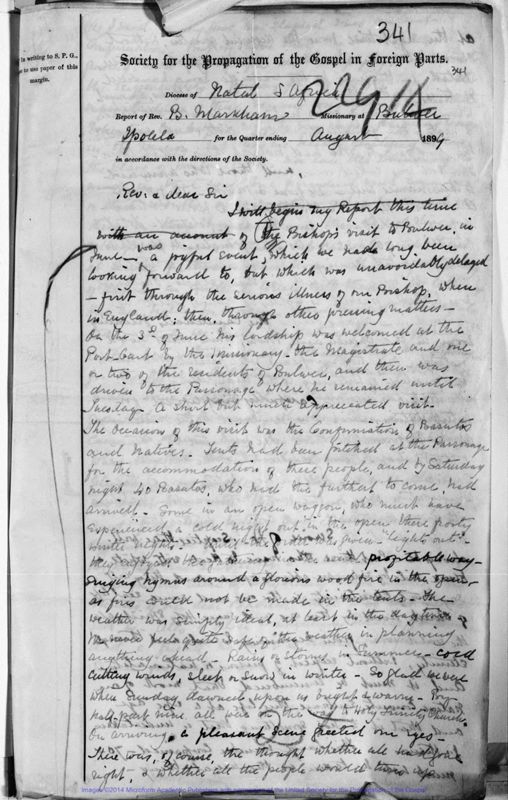 341
In writing to S. P. G.,
to use paper of this
margin.
Society for the Propagation of the Gospel in Foreign Parts.
341
Diocese of Natal S Africa
Report of Rev. B. Markham Missionary at Bulwer
Ipolela for the Quarter ending August 1899
in accordance with the directions of the Society.
Rev: & dear Sir
I will begin my Report this time
with an account of The Bishop's visit to Bulwer, in
June was a joyful event, which we had long been
looking forward to, but which was unavoidably delayed
– first through the serious illness of our Bishop, when
in England; then, through other pressing matters –
On the 3rd of June his lordship was welcomed at the
Post-Cart by the Missionary – the Magistrate and one
or two of the residents of Bulwer, and then was
driven to the Parsonage where he remained until
Tuesday. A short but much appreciated visit –
The occasion of this visit was the Confirmation of Basutos
and Natives. Tents had been pitched at the Parsonage
for the accommodation of these people, and by Saturday
night 40 Basutos, who had the furthest to come, had
arrived. Some in an open waggon, who must have
experienced a cold night out in the open these frosty
winter nights.
they profitable way –
singing hymns around a glowing wood fire in the open,
as fires could not be made in the tents – The
weather was simply ideal, at least in the daytime
We never feel quite safe in the weather in planning
anything ahead – Rains or storms in Summer – cold
cutting winds, sleet or snow in winter – So glad we were
when Sunday dawned upon us bright & warm – By
half-past nine all was on the way to Holy Trinity Church.
On arriving, a pleasant scene greeted our eyes –
There was, of course, the thought whether all would go
right, & whether all the people would
Images ©2014 Microform Academic Publishers with permission of the United Society for the Propagation of the Gospel